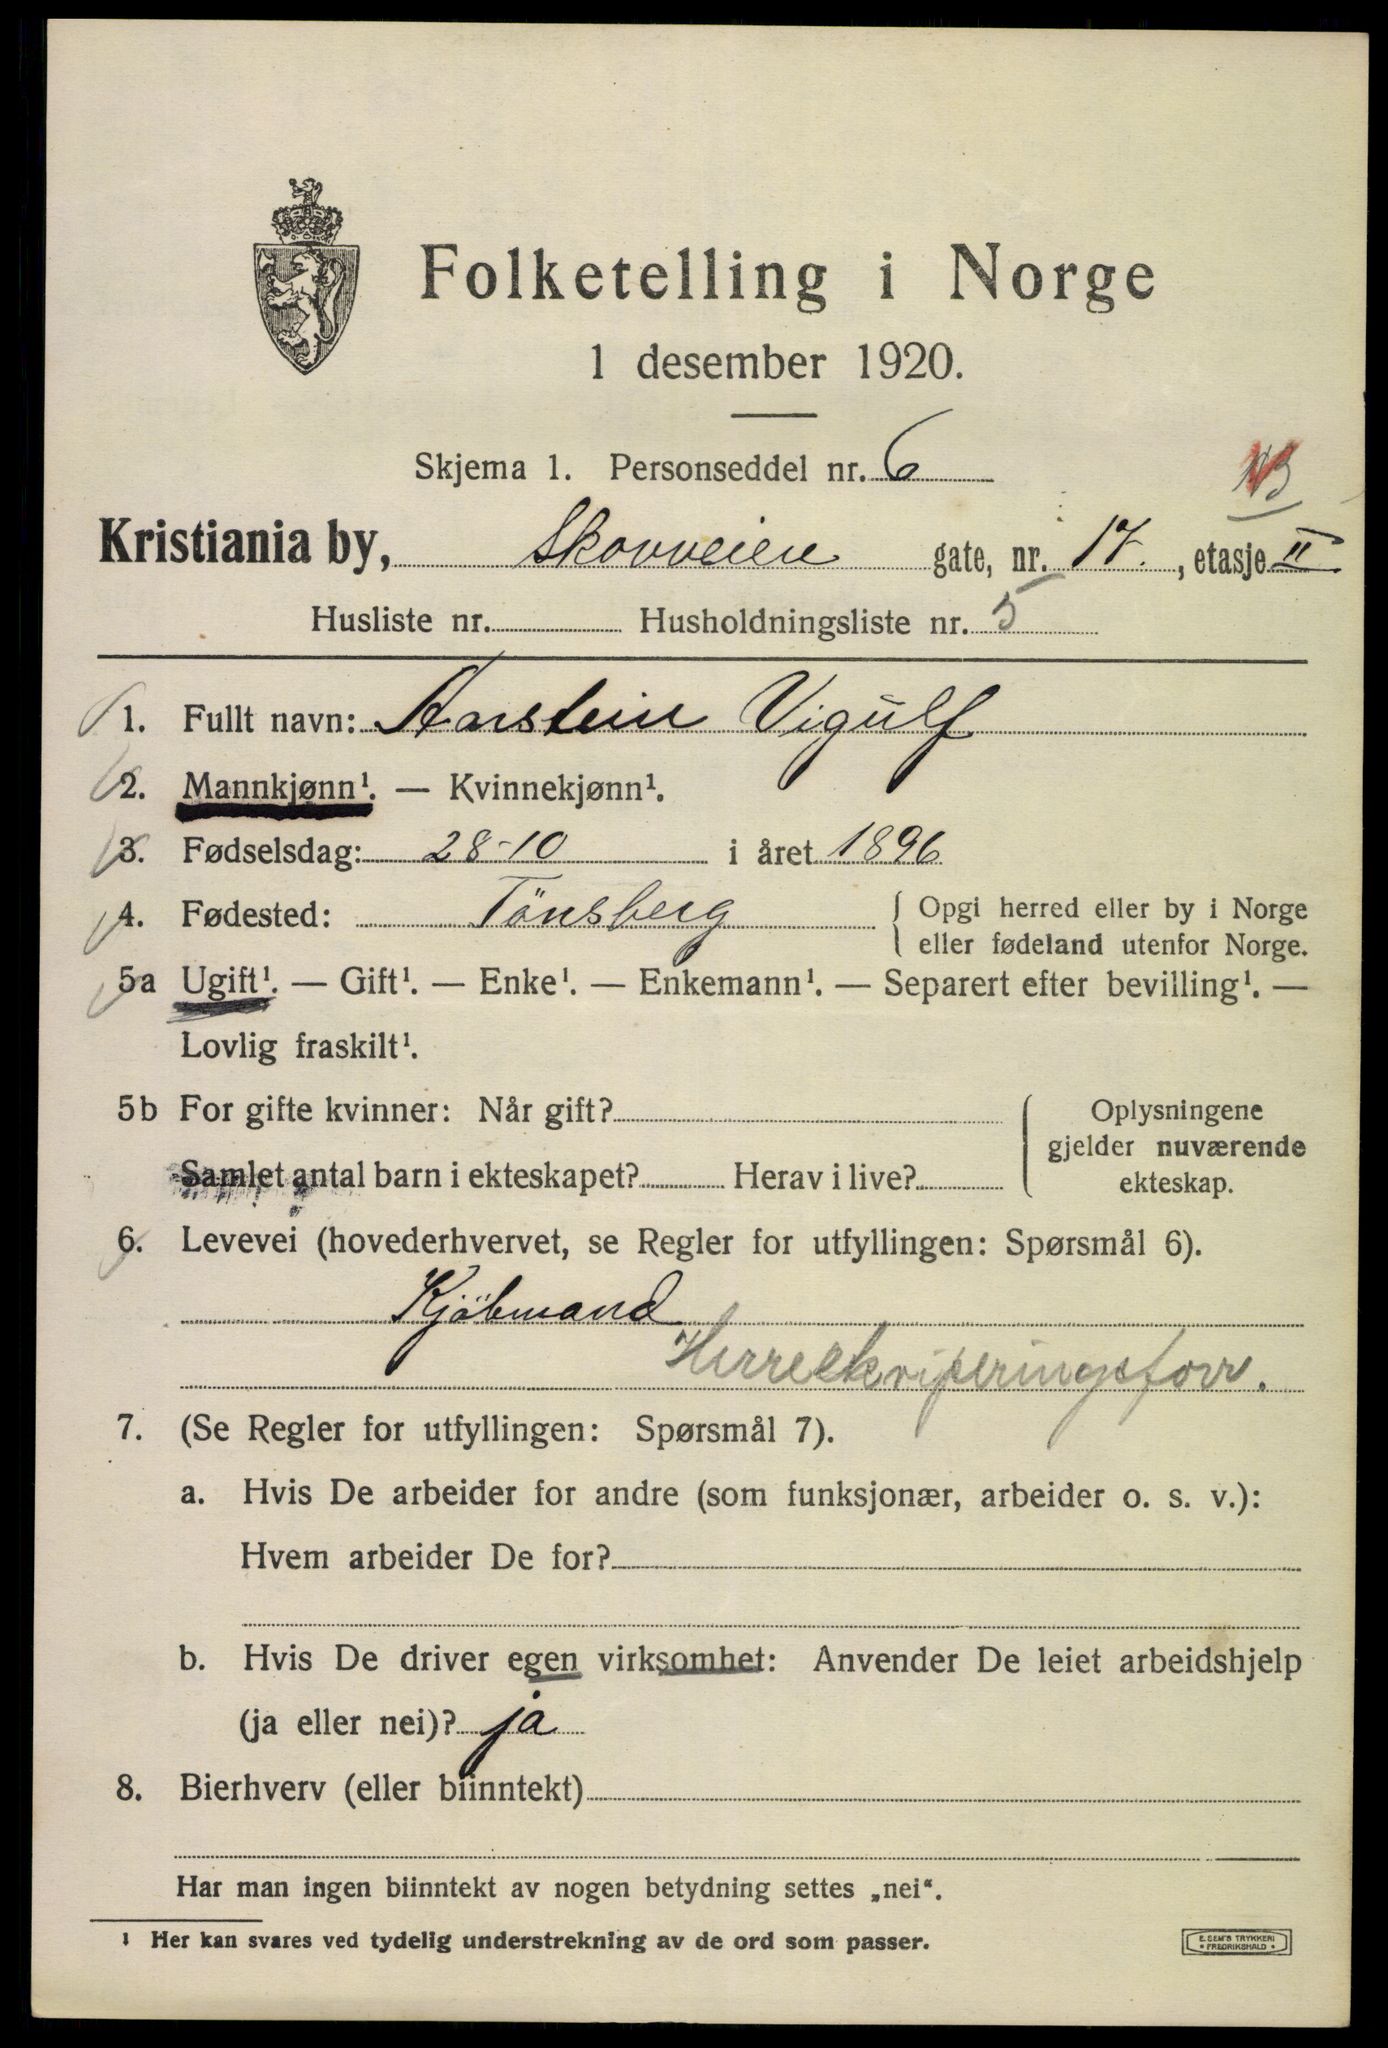 Folketelling i Norge
1 desember 1920.
Skjema 1. Personseddel nr. 6
Kristiania by, Skovveien gate, nr. 17. , etasje II
Husliste nr. Husholdningsliste nr. 5
1. Fullt navn: Aarstein Vigulf
2. Mannkjønn¹. — Kvinnekjønn¹.
3. Fødselsdag: 28-10 i året 1896
4. Fødested: Tönsberg { Opgi herred eller by i Norge
eller fødeland utenfor Norge.
5a Ugift¹. — Gift¹. — Enke¹. — Enkemann¹. — Separert efter bevilling¹. —
Lovlig fraskilt¹.
5b For gifte kvinner: Når gift? Oplysningene
gjelder nuværende
Samlet antal barn i ekteskapet? Herav i live? ekteskap.
6. Levevei (hovederhvervet, se Regler for utfyllingen: Spørsmål 6).
Kjöbmand
Herreekviperingsforr.
7. (Se Regler for utfyllingen: Spørsmål 7).
a. Hvis De arbeider for andre (som funksjonær, arbeider o. s. v.):
Hvem arbeider De for?
b. Hvis De driver egen virksomhet: Anvender De leiet arbeidshjelp
(ja eller nei)? ja
8. Bierhverv (eller biinntekt)
Har man ingen biinntekt av nogen betydning settes „nei“.
¹ Her kan svares ved tydelig understrekning av de ord som passer.
E. SEM'S TRYKKERI
• FREDRIKSHALD •